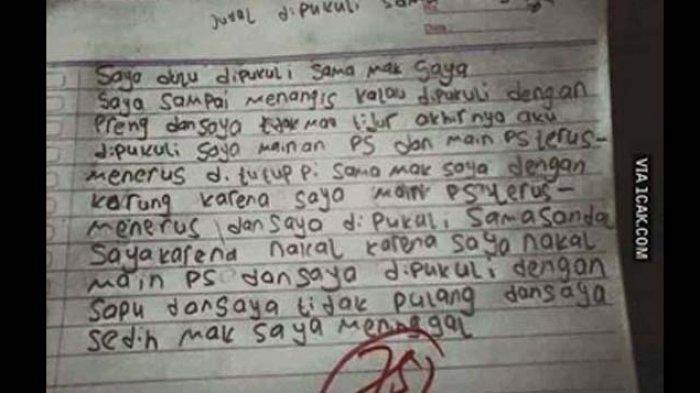 Judul dipukuli sama
Saya dulu dipukuli sama mak saya
Saya sampai menangis kalau dipukuli dengan
Preng dansaya tidak mau tidur akhirnya aku
dipukuli saya mainan PS dan main PS terus-
menerus di tutup pi sama mak saya dengan
karung karena saya main PS terus-
menerus dansaya di pukuli samasandal
Sayakarena nakal karena saya nakal
main PS dansaya dipukuli dengan
sapu dansaya tidak pulang dansaya
sedih mak saya meninggal
75
VIA 1CAK.COM